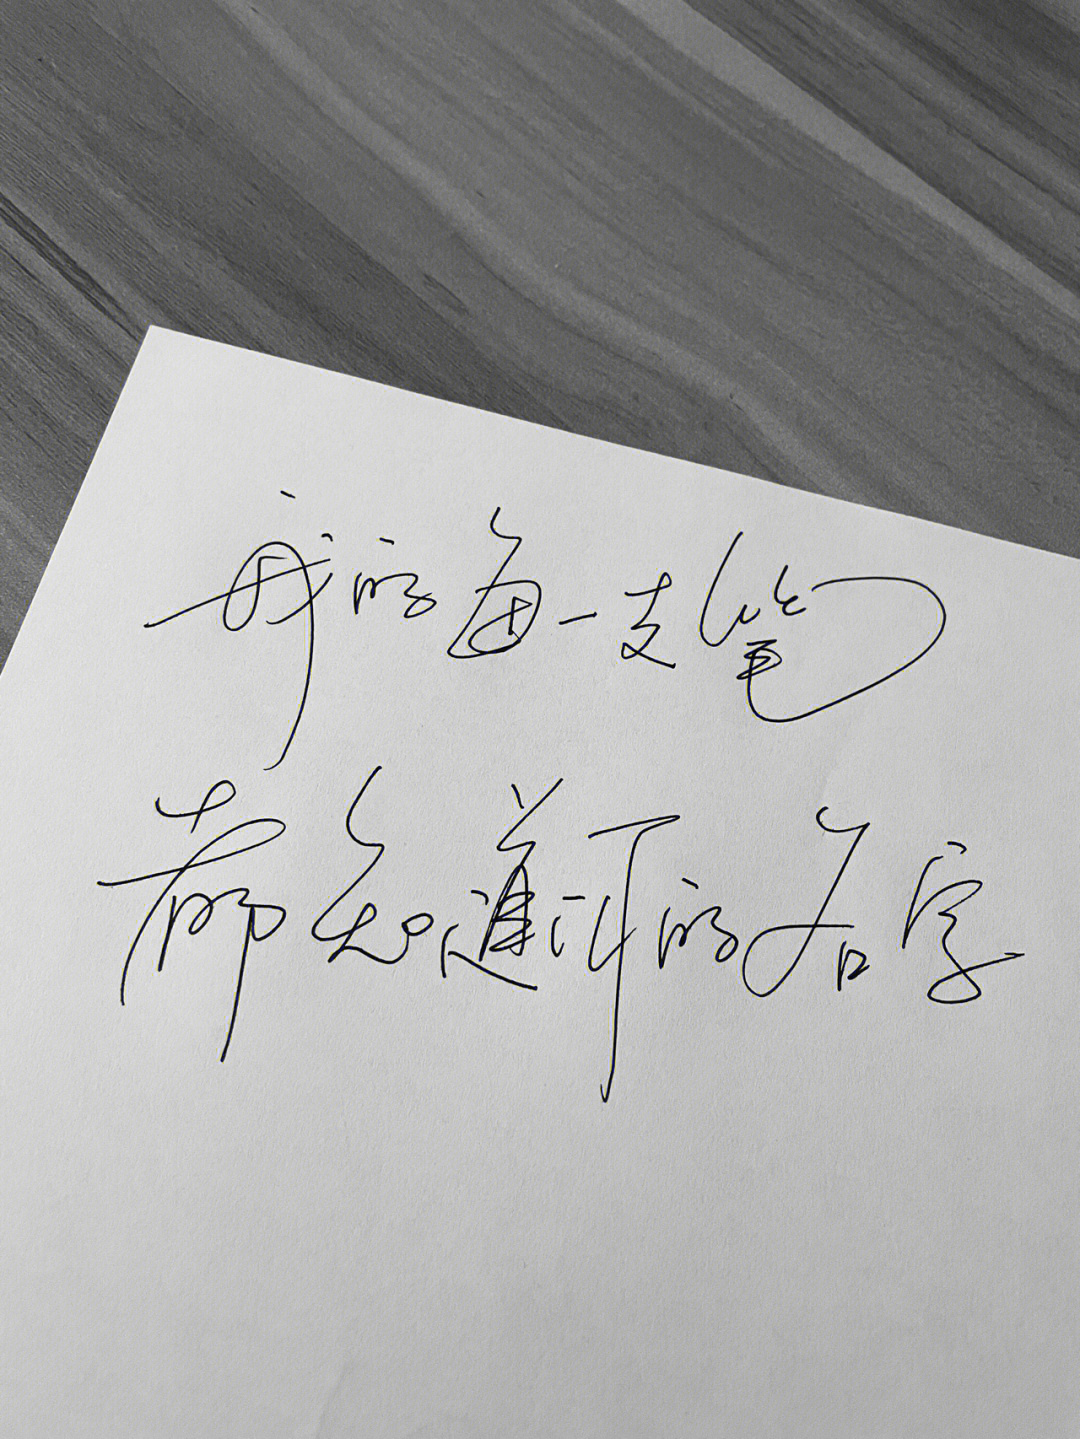 我的每一支笔
都知道你的名字